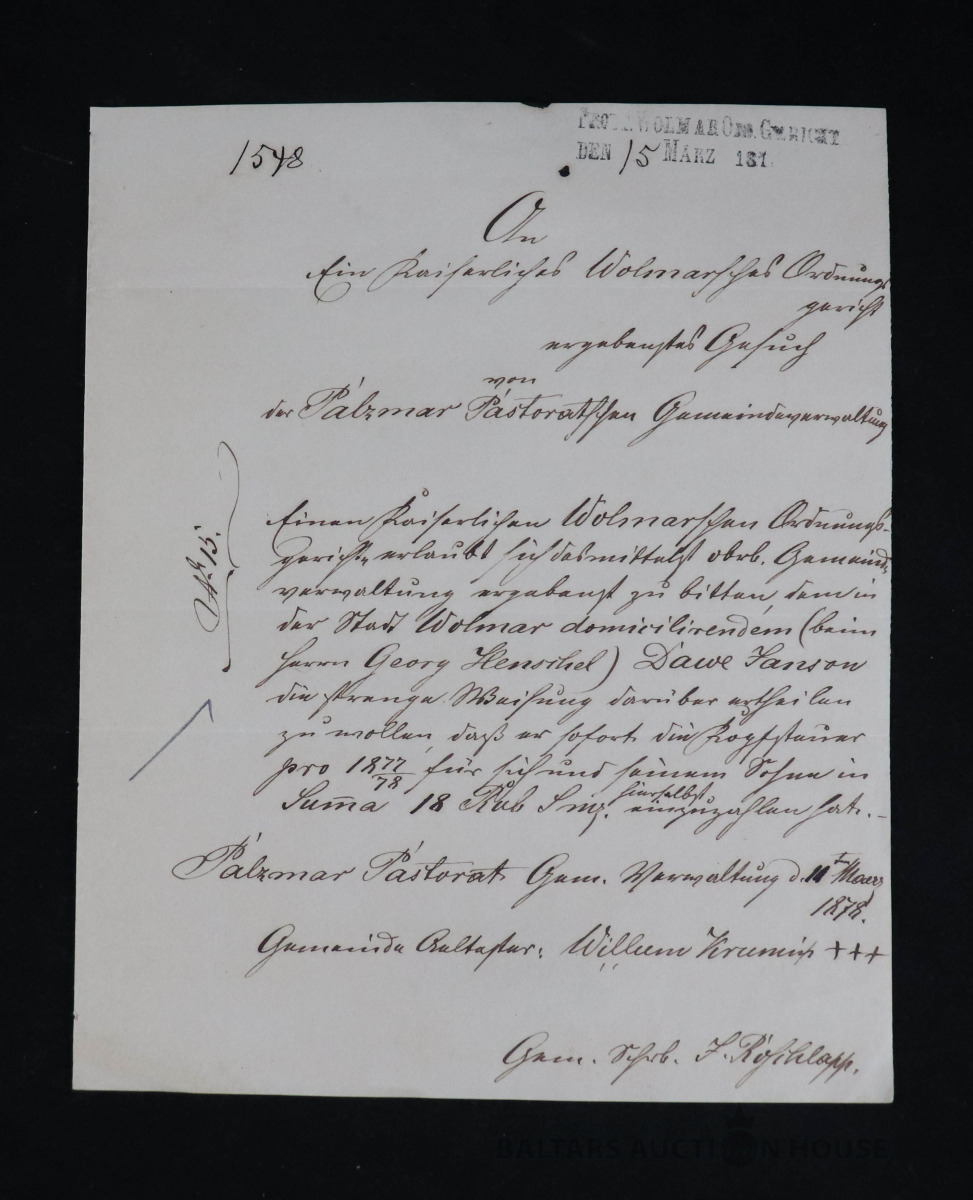 PROD. WOLMAR ORD. GERICHT
DEN 15 MÄRZ 187
1548
An
Ein Kaiserliches Wolmarsches Ordnungs
gericht
ergebenstes Gesuch
von
der Palzmar Pastoratschen Gemeindeverwaltung
№ 15.
Einen Kaiserlichen Wolmarschen Ordnungs-
gericht erlaubt sich desmittelst obrb. Gemeinde
verwaltung ergebenst zu bitten, dem in
der Stadt Wolmar domicilirendem (beim
Herrn Georg Henschel) Dawe Janson
die strenge Weisung darüber ertheilen
zu wollen, daß er sofort die Kopfsteuer
pro 1877/78 für sich und seinem Sohne in
Suma 18 Rub S mz. hierselbst einzuzahlen hat. -
Palzmar Pastorat Gem. Verwaltung d. 11t Maerz
1878.
Gemeinde Aeltester: Willum Krumin +++
Gem. Schrb. J.
BALTARS AUCTION HOUSE